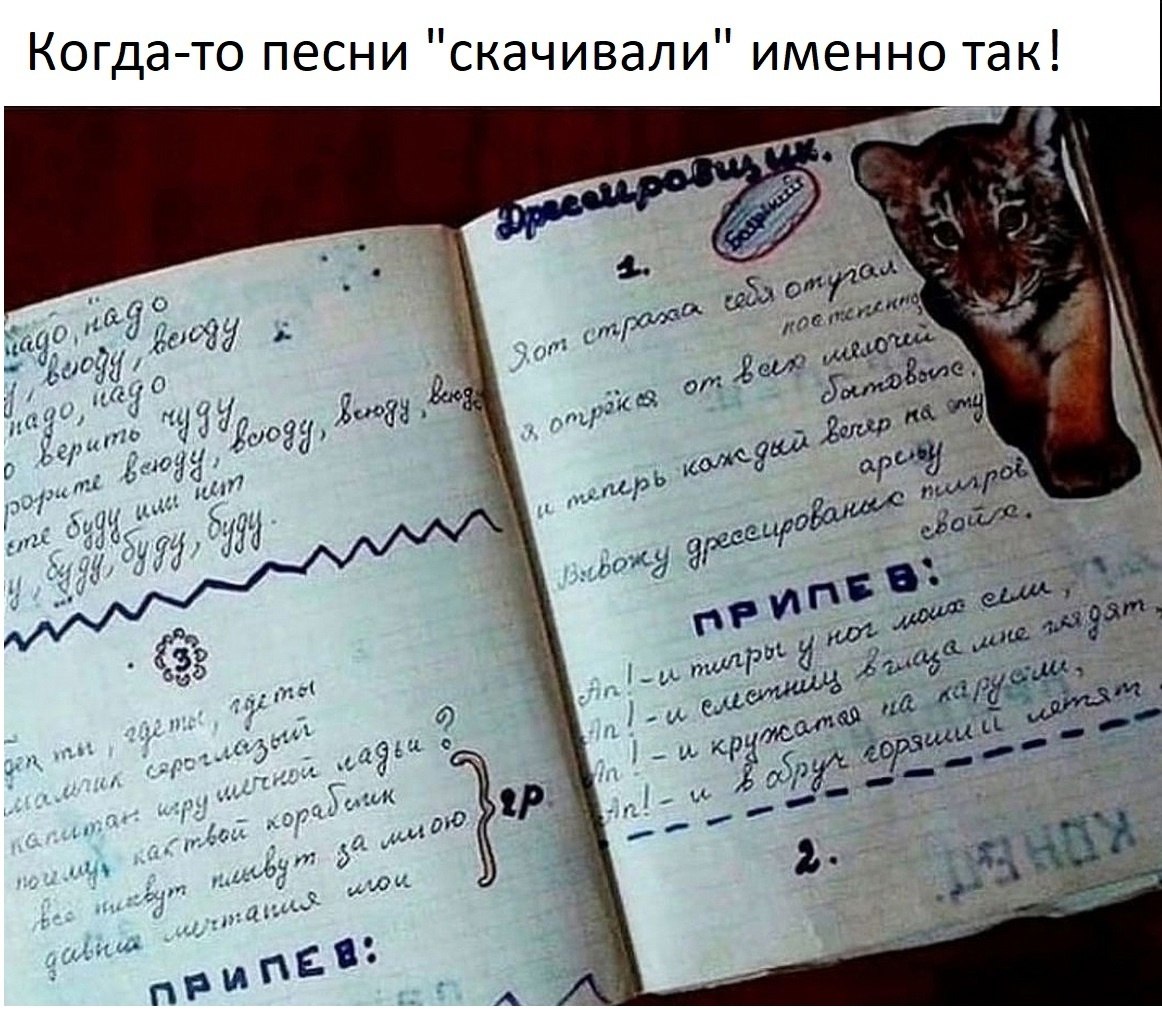 Когда-то песни "скачивали" именно так!
надо, надо
всюду, всюду
надо, надо
верить чуду
всюду, всюду, всюду, всюду
буду или нет
буду, буду, буду.
3
где ты, где ты
мальчик сероглазый
капитан игрушечной ладьи?
почему, как твой кораблик
все плывут плывут за мною
давние мечтания мои
2р
ПРИПЕВ:
Дрессировщик.
1.
Я от страха себя отучал
постепенно
я отрёкся от всех мелочей
бытовых.
и теперь каждый вечер на эту
арену
Вывожу дрессированых тигров
своих.
ПРИПЕВ:
Ап!-и тигры у ног моих сели,
Ап!-и с лестниц в глаза мне глядят,
Ап!-и кружатся на карусели,
Ап!-и в обруч горящий летят
2.
КОНЕЦ.